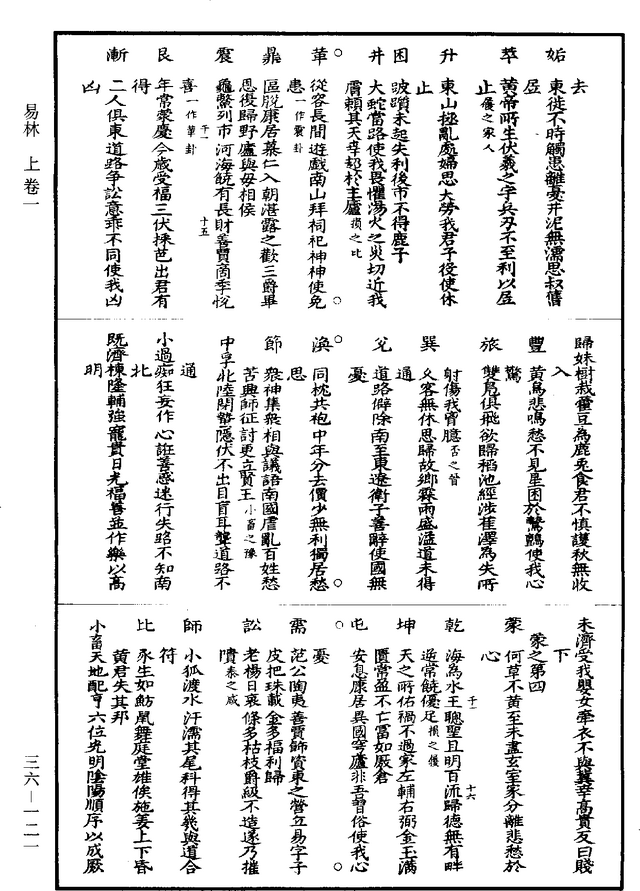 易林 上卷一
三六—一二一
去
姤 東徙不時觸患離憂井泥無濡思叔舊
居
萃 黃帝所生伏羲之宇兵刃不至利以居
止 儀之家人
升 東山拯亂處婦思夫勞我君子役使休
止
困 跛躓未起失利後市不得鹿子
井 大蛇當路使我畏懼湯火之災切近我
膚賴其天幸趍於王廬 損之比
革 從容長閒遊戲南山拜祠祀神神使免
患 一作震卦
鼎 區脫康居慕仁入朝湛露之歡三爵畢
恩復歸野廬與母相俟
震 龜鱉列市河海饒有長財善賈商季悅
喜 一作革卦
艮 年常蒙慶今歲受福三伏採芭出君有
得
漸 二人俱東道路爭訟意乖不同使我凶
凶
歸妹 樹栽藿豆為鹿兎食君不慎護秋無收
入
豐 黃鳥悲鳴愁不見星困於鷙鸇使我心
驚
旅 雙鳧俱飛欲歸稻池經涉萑澤為矢所
射傷我胷臆 否之晉
巽 久客無休思歸故鄉霖雨盛溢道未得
通
兊 道路僻除南至東遼衛子善辭使國無
憂
渙 同枕共袍中年分去價少無利獨居愁
思
節 衆神集聚相與議語南國虐亂百姓愁
苦興師征討更立賢王 小畜之豫
中孚 北陸閉蟄隱伏不出目盲耳聾道路不
通
小過 痴狂妄作心誑善惑迷行失路不知南
北
既濟 棟隆輔強寵貴日光福善並作樂以高
明
未濟 受我嬰女牽衣不與冀幸高貴反曰賤
下
蒙之第四
蒙 何草不黃至未盡玄室家分離悲愁於
心
乾 海為水王聰聖且明百流歸德無有畔
逆常饒優足 損之儀
坤 天之所佑禍不過家左輔右弼金玉滿
匱常盈不亡富如厫倉
屯 安息康居異國穹廬非吾習俗使我心
憂
需 范公陶夷善賈飾資東之營丘易字子
皮把珠載金多福利歸
訟 老楊日衰條多枯枝爵級不造遂乃摧
隤 泰之咸
師 小狐渡水汙濡其尾科得其幾與道合
符
比 永生如魴凮舞庭堂雄俟施妻上下昏
黃君失其邦
小畜 天地配亨六位光明陰陽順序以成厥